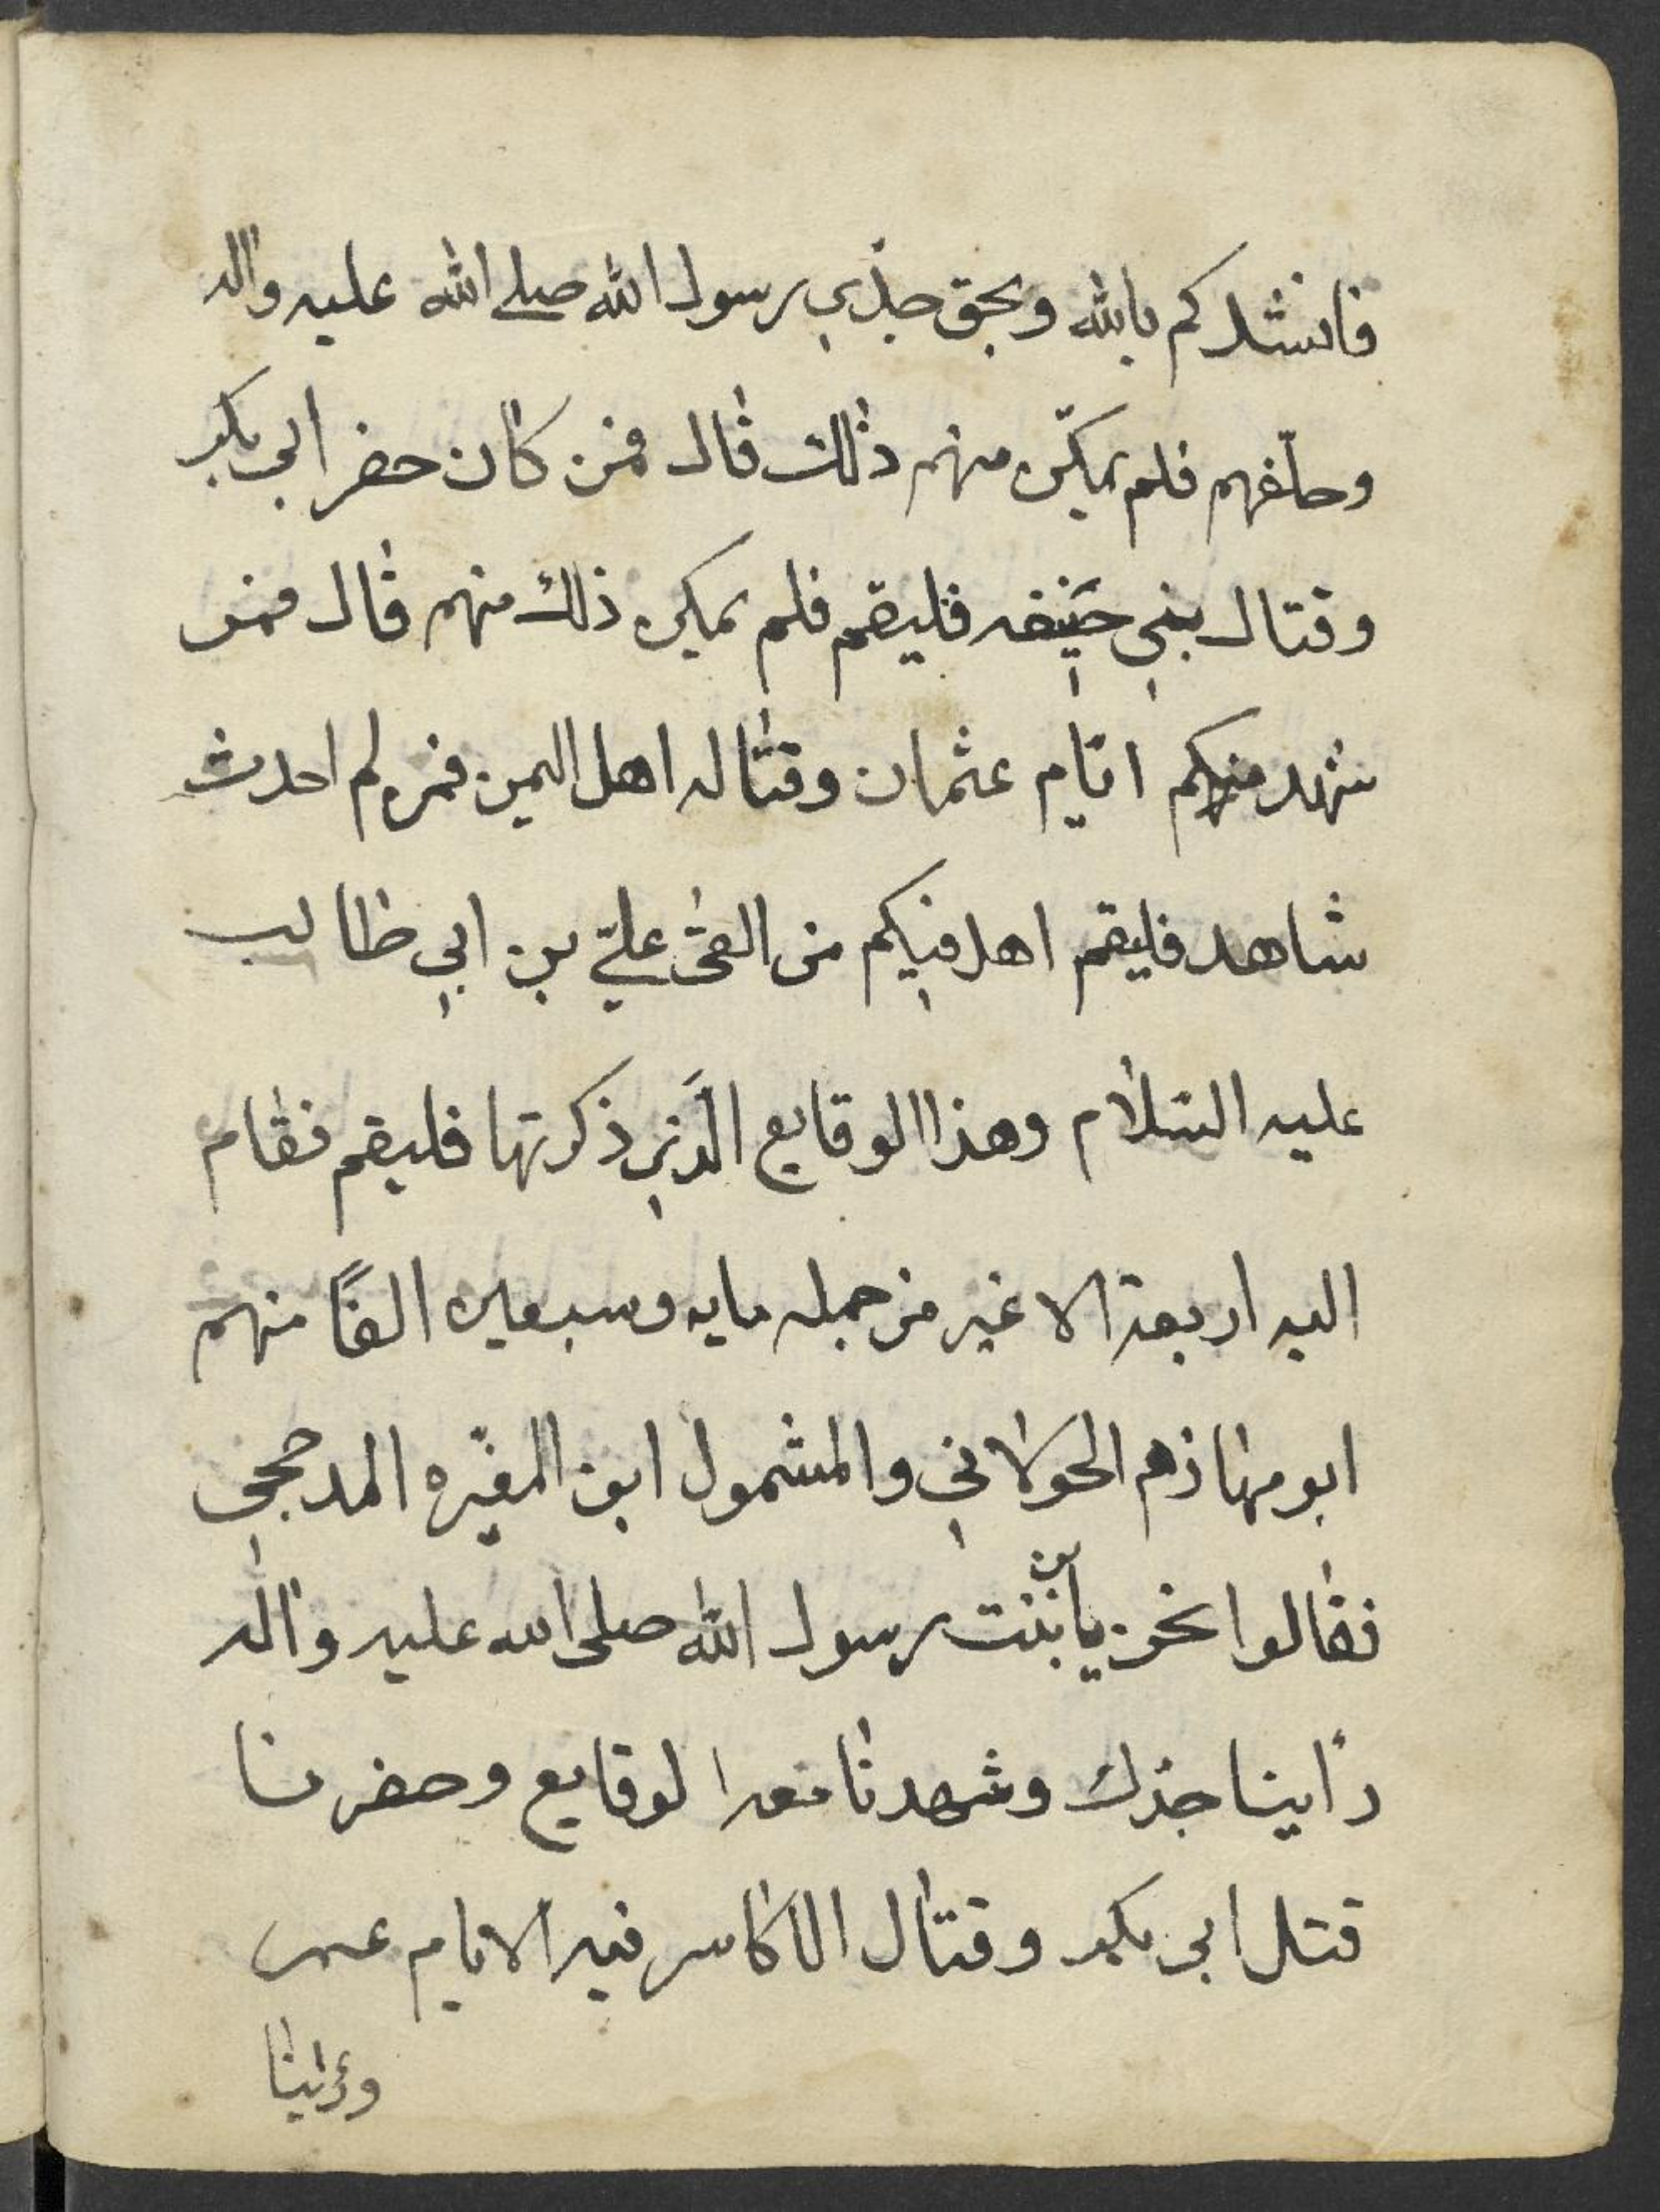 فانشدكم بالله وبحق جدّي رسول الله صلى الله عليه واله
وحلّفهم فلم يمكّن منهم ذلك قال فمن كان حضر ابي بكر
وقتال بني حنيفه فليقم فلم يمكن ذلك منهم قال فمن
شهد منكم ايّام عثمان وقتاله اهل اليمن فمن لم احدث
شاهد فليقم اهل فيكم من الفتى عليّ بن ابي طالب
عليه السّلام وهذا الوقايع الّذي ذكرتها فليقم فقام
اليه اربعة لا غير من جمله مايه وسبعين الفًا منهم
ابو مهاذم الخولاني والمشمول ابن المغيّره المدحجي
فقالوا نحن يا بن بنت رسول الله صلى الله عليه واله
رأينا جدّك وشهدنا معه الوقايع وحضرنا
قتل ابي بكر وقتال الاكاسر فيه الايام عمر
ورأينا